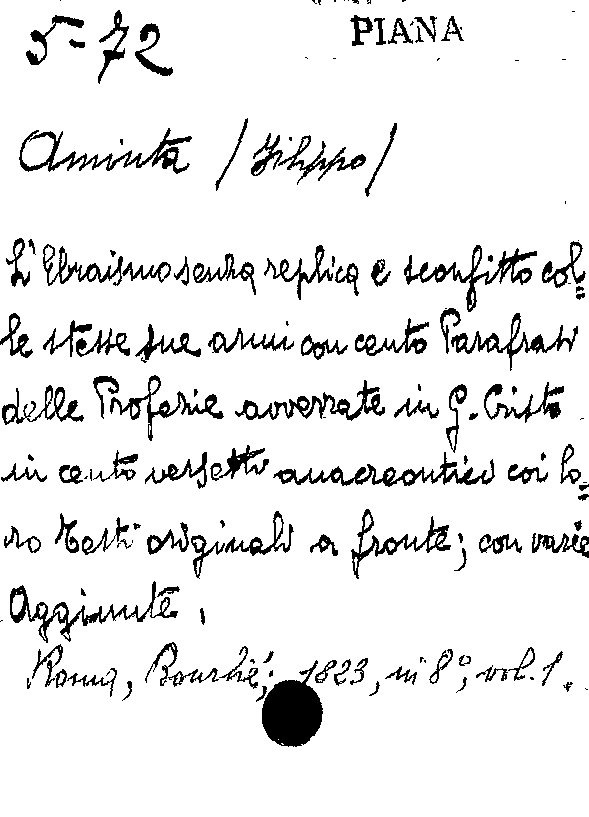 5-72
PIANA
Aminta /Filippo/
L'Ebraismo senza replica e sconfitto col=
le stesse sue armi con cento Parafrasi
delle Profezie avverate in G. Cristo
in cento versetti anacreontici coi lo=
ro Testi originali a fronte; con varie
Aggiunte,
Roma, Bourlié; 1823, in 8°, vol. 1.